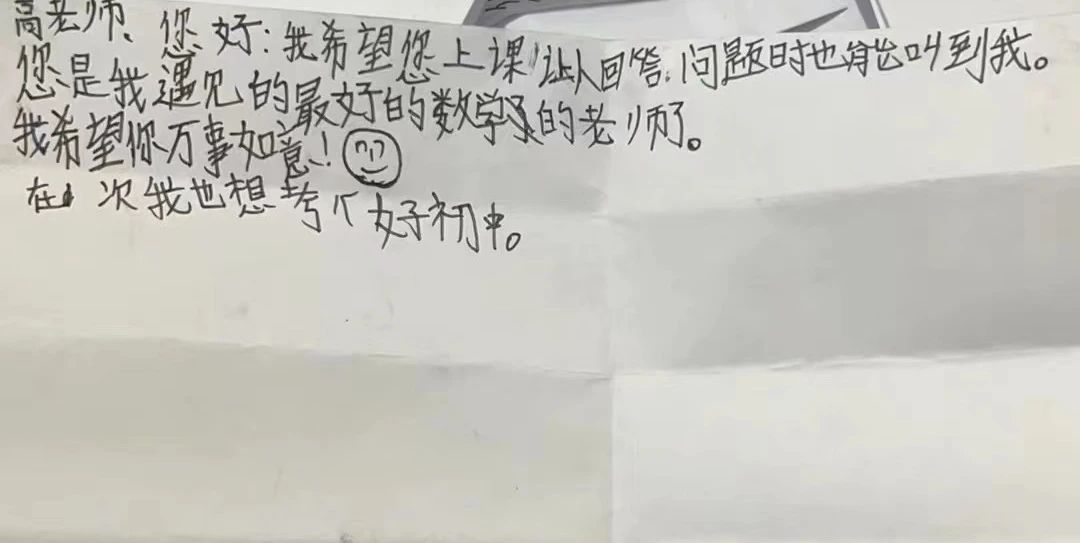 高老师、您好:我希望您上课让人回答问题时也能叫到我。
您是我遇见的最好的数学的老师了。
我希望你万事如意!
在次我也想考个好初中。